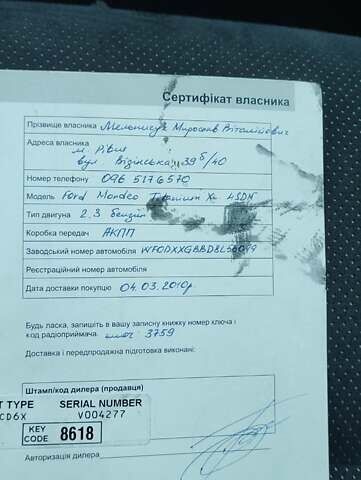 Сертифікат власника
Прізвище власника Мельничук Мирослав Віталійович
Адреса власника
м. Рівне
вул. Відінська, 39б/40
Номер телефону 096 5176570
Модель Ford Mondeo Titanium X 4SDN
Тип двигуна 2.3 бензин
Коробка передач АКПП
Заводський номер автомобіля
Реєстраційний номер автомобіля
Дата доставки покупцю 04.03.2010р.
Будь ласка, запишіть в вашу записну книжку номер ключа і
код радіоприймача. ключ: 3759
Доставка і передпродажна підготовка виконані:
Штамп/код дилера (продавця)
T TYPE SERIAL NUMBER
CD6X V004277
KEY
CODE 8618
Авторизація дилера